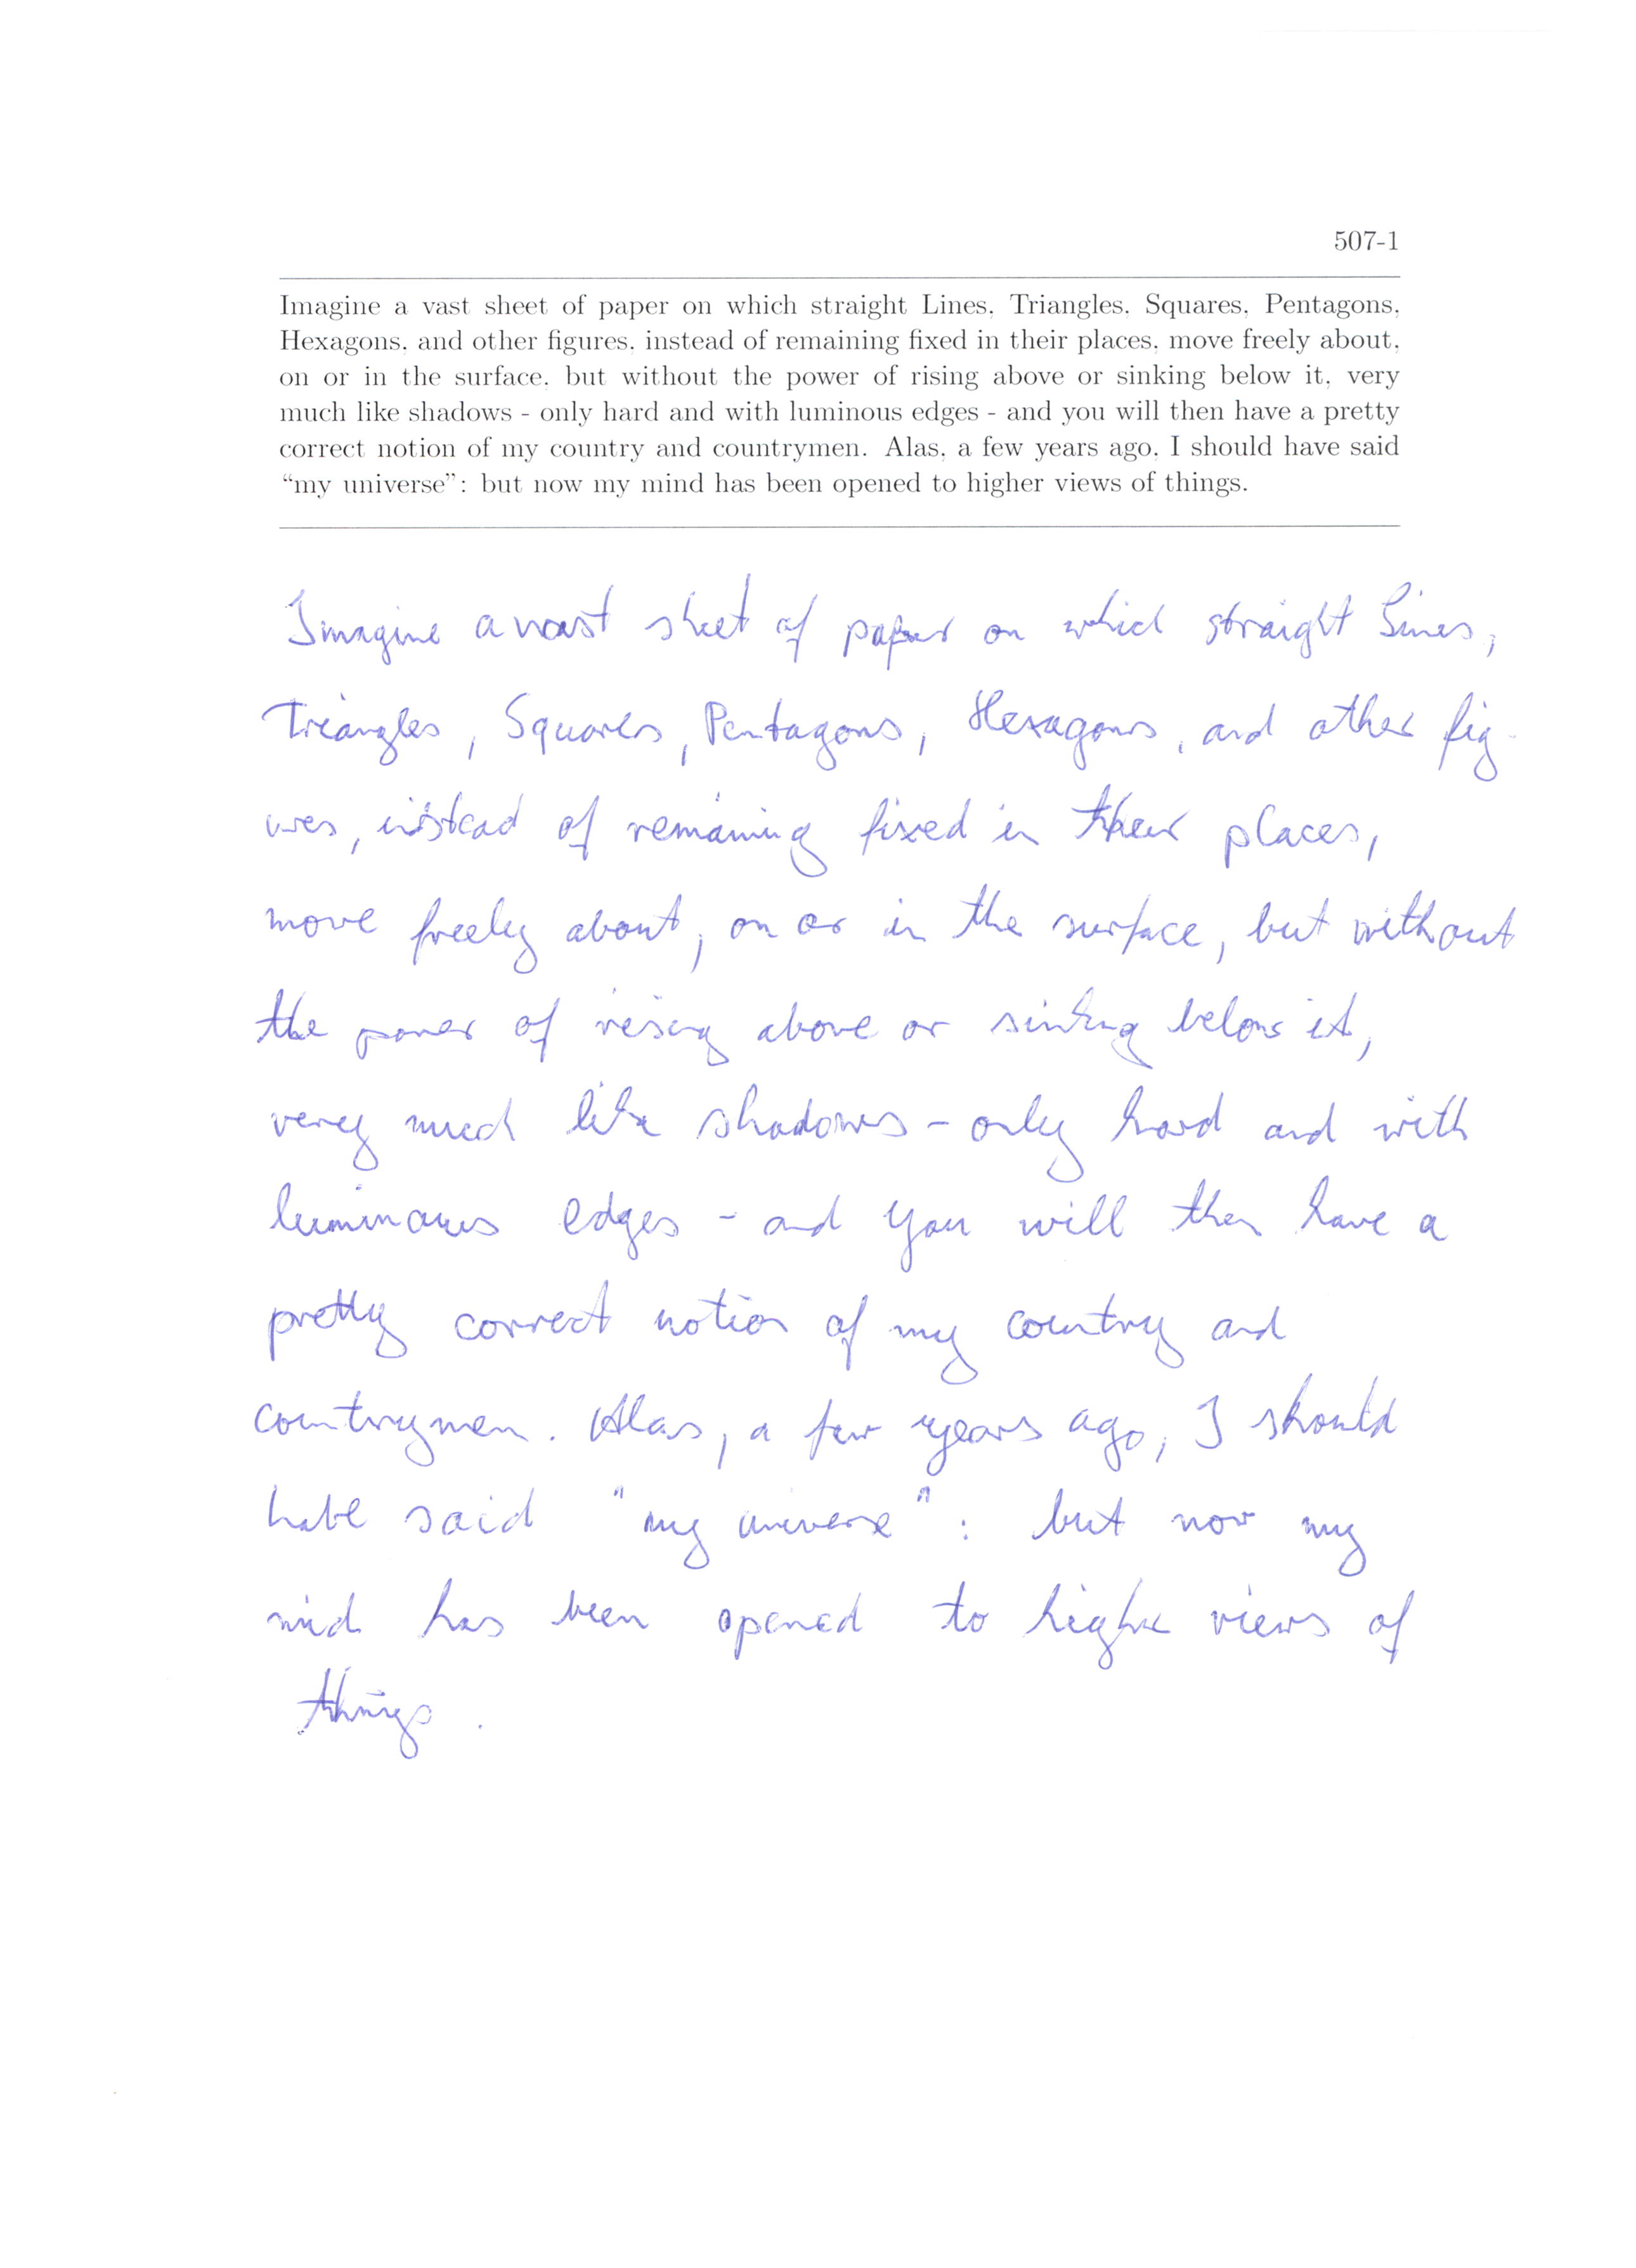 507-1
Imagine a vast sheet of paper on which straight Lines, Triangles, Squares, Pentagons,
Hexagons, and other figures, instead of remaining fixed in their places, move freely about,
on or in the surface, but without the power of rising above or sinking below it, very
much like shadows - only hard and with luminous edges - and you will then have a pretty
correct notion of my country and countrymen. Alas, a few years ago, I should have said
“my universe”: but now my mind has been opened to higher views of things.
Imagine a vast sheet of paper on which straight Lines,
Triangles, Squares, Pentagons, Hexagons, and other fig-
ures, instead of remaining fixed in their places,
move freely about, on or in the surface, but without
the power of rising above or sinking below it,
very much like shadows - only hard and with
luminous edges - and you will then have a
pretty correct notion of my country and
countrymen. Alas, a few years ago, I should
have said "my universe": but now my
mind has been opened to higher views of
things.